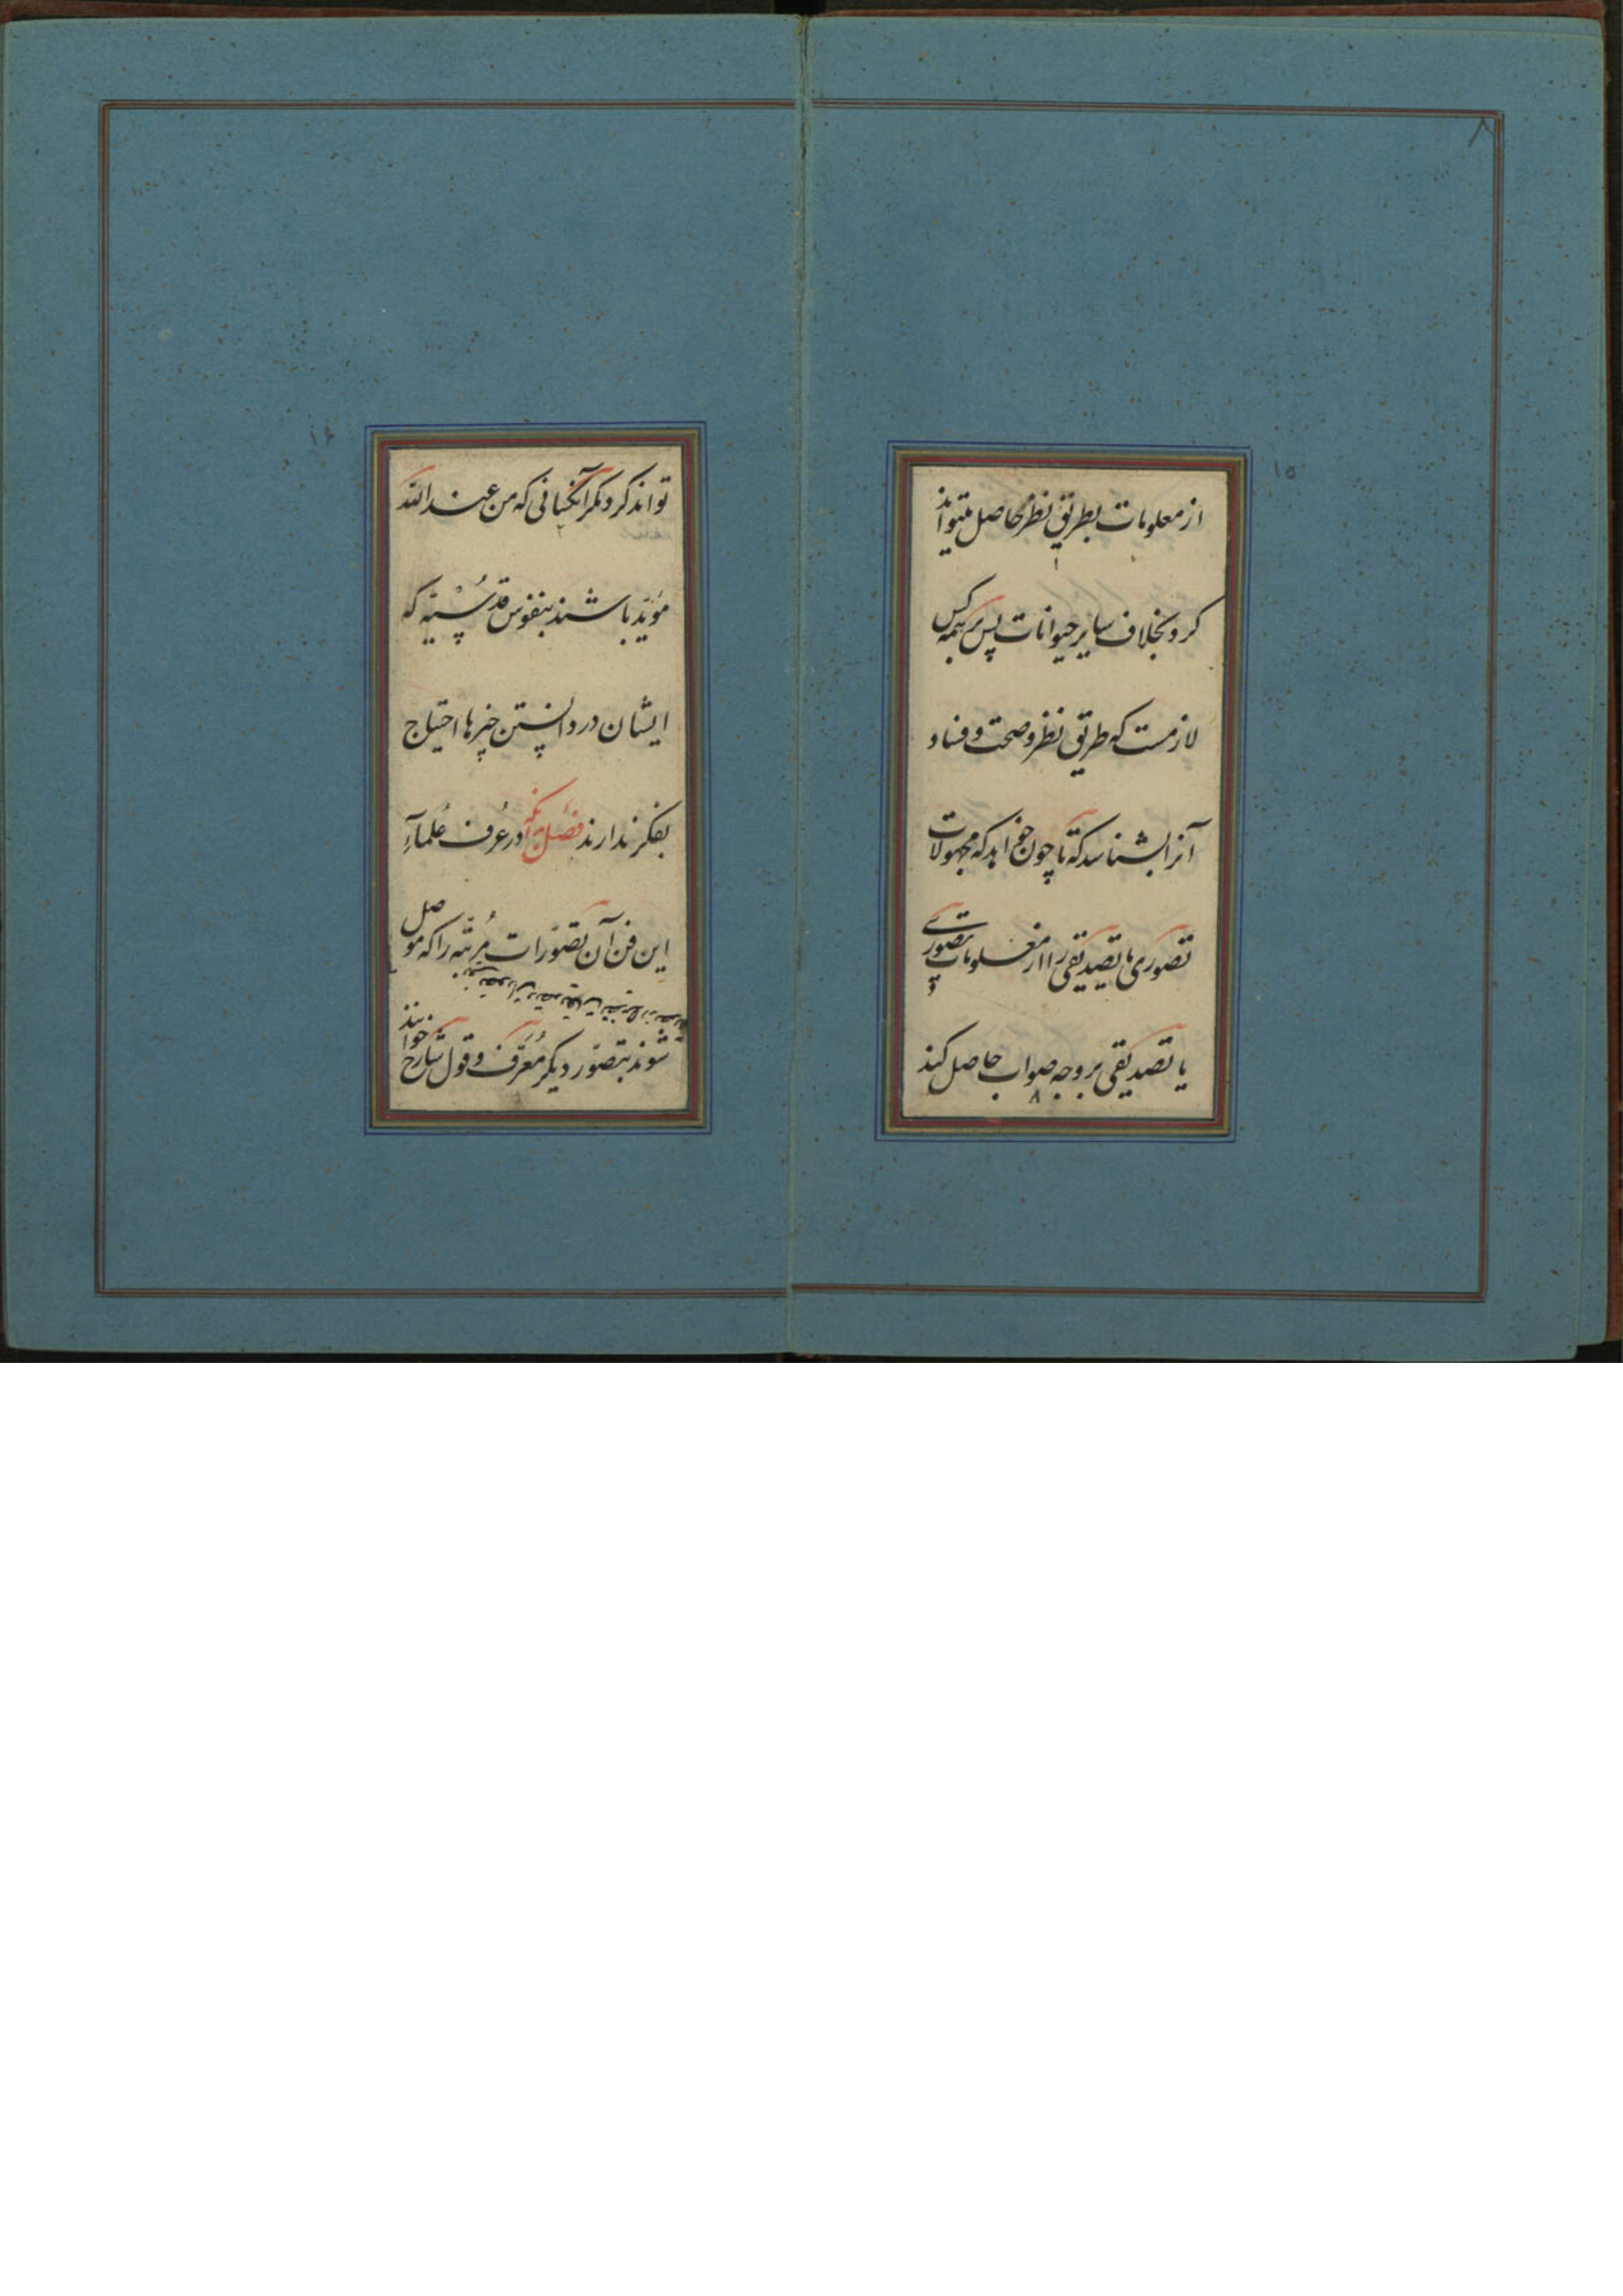 ۸
۱۵
از معلومات بطریق نظر حاصل میتواند
کرد بخلاف سایر حیوانات پس بر همه کس
لازمست که طریق نظر و صحت و فساد
آنرا بشناسد که تا چون خواهد که مجهولات
تصوری یا تصدیقی را از معلومات تصوری
یا تصدیقی بر وجه صواب حاصل کند
۸
۱۶
تواند کرد مگر آنکسانی که من عند الله
مؤید باشند بنفوس قدسیّه که
ایشان در دانستن چیزها احتیاج
بفکر ندارند فصل بدانکه در عرف علماء
این فن آن تصوّرات مرتّبه را که موصل
شوند بتصوّر دیگر مُعَرِّف و قول شارح خوانند